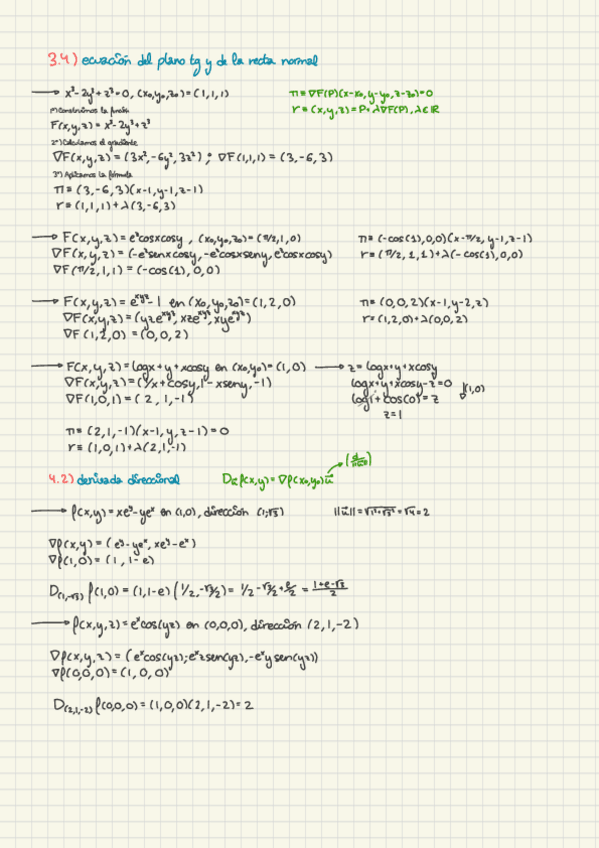 3.4) ecuación del plano tg y de la recta normal
→ x³-2y³+z³=0, (x₀,y₀,z₀)=(1,1,1)
π≡∇F(P)(x-x₀,y-y₀,z-z₀)=0
r≡(x,y,z)=P+λ∇F(P), λ∈ℝ
1º) Construimos la función
F(x,y,z)=x³-2y³+z³
2º) Calculamos el gradiente
∇F(x,y,z)=(3x²,-6y²,3z²); ∇F(1,1,1)=(3,-6,3)
3º) Aplicamos la fórmula
π≡(3,-6,3)(x-1,y-1,z-1)
r≡(1,1,1)+λ(3,-6,3)
→ F(x,y,z)=eᶻcosxcosy, (x₀,y₀,z₀)=(π/2,1,0)
∇F(x,y,z)=(-eᶻsenxcosy,-eᶻcosxseny,eᶻcosxcosy)
∇F(π/2,1,1)=(-cos(1),0,0)
π≡(-cos(1),0,0)(x-π/2,y-1,z-1)
r≡(π/2,1,1)+λ(-cos(1),0,0)
→ F(x,y,z)=eˣʸᶻ-1 en (x₀,y₀,z₀)=(1,2,0)
∇F(x,y,z)=(yzeˣʸᶻ,xzeˣʸᶻ,xyeˣʸᶻ)
∇F(1,2,0)=(0,0,2)
π≡(0,0,2)(x-1,y-2,z)
r≡(1,2,0)+λ(0,0,2)
→ F(x,y,z)=logx+y+xcosy en (x₀,y₀)=(1,0)
∇F(x,y,z)=(1/x+cosy,1-xseny,-1)
∇F(1,0,1)=(2,1,-1)
→ z=logx+y+xcosy
logx+y+xcosy-z=0
log1+cos(0)=z
(1,0)
z=1
π≡(2,1,-1)(x-1,y,z-1)=0
r≡(1,0,1)+λ(2,1,-1)
4.2) derivada direccional
Dūf(x,y)=∇f(x₀,y₀)ū
→ f(x,y)=xeʸ-yeˣ en (1,0), dirección (1,-√3)
||ū||=√1²+√3²=√4=2
∇f(x,y)=(eʸ-yeˣ,xeʸ-eˣ)
∇f(1,0)=(1,1-e)
D(1,-√3)f(1,0)=(1,1-e)(1/2,-√3/2)=1/2-√3/2+e/2=1+e-√3/2
→ f(x,y,z)=eˣcos(yz) en (0,0,0), dirección (2,1,-2)
∇f(x,y,z)=(eˣcos(yz);eˣzsen(yz),-eˣysen(yz))
∇f(0,0,0)=(1,0,0)
D(2,1,-2)f(0,0,0)=(1,0,0)(2,1,-2)=2